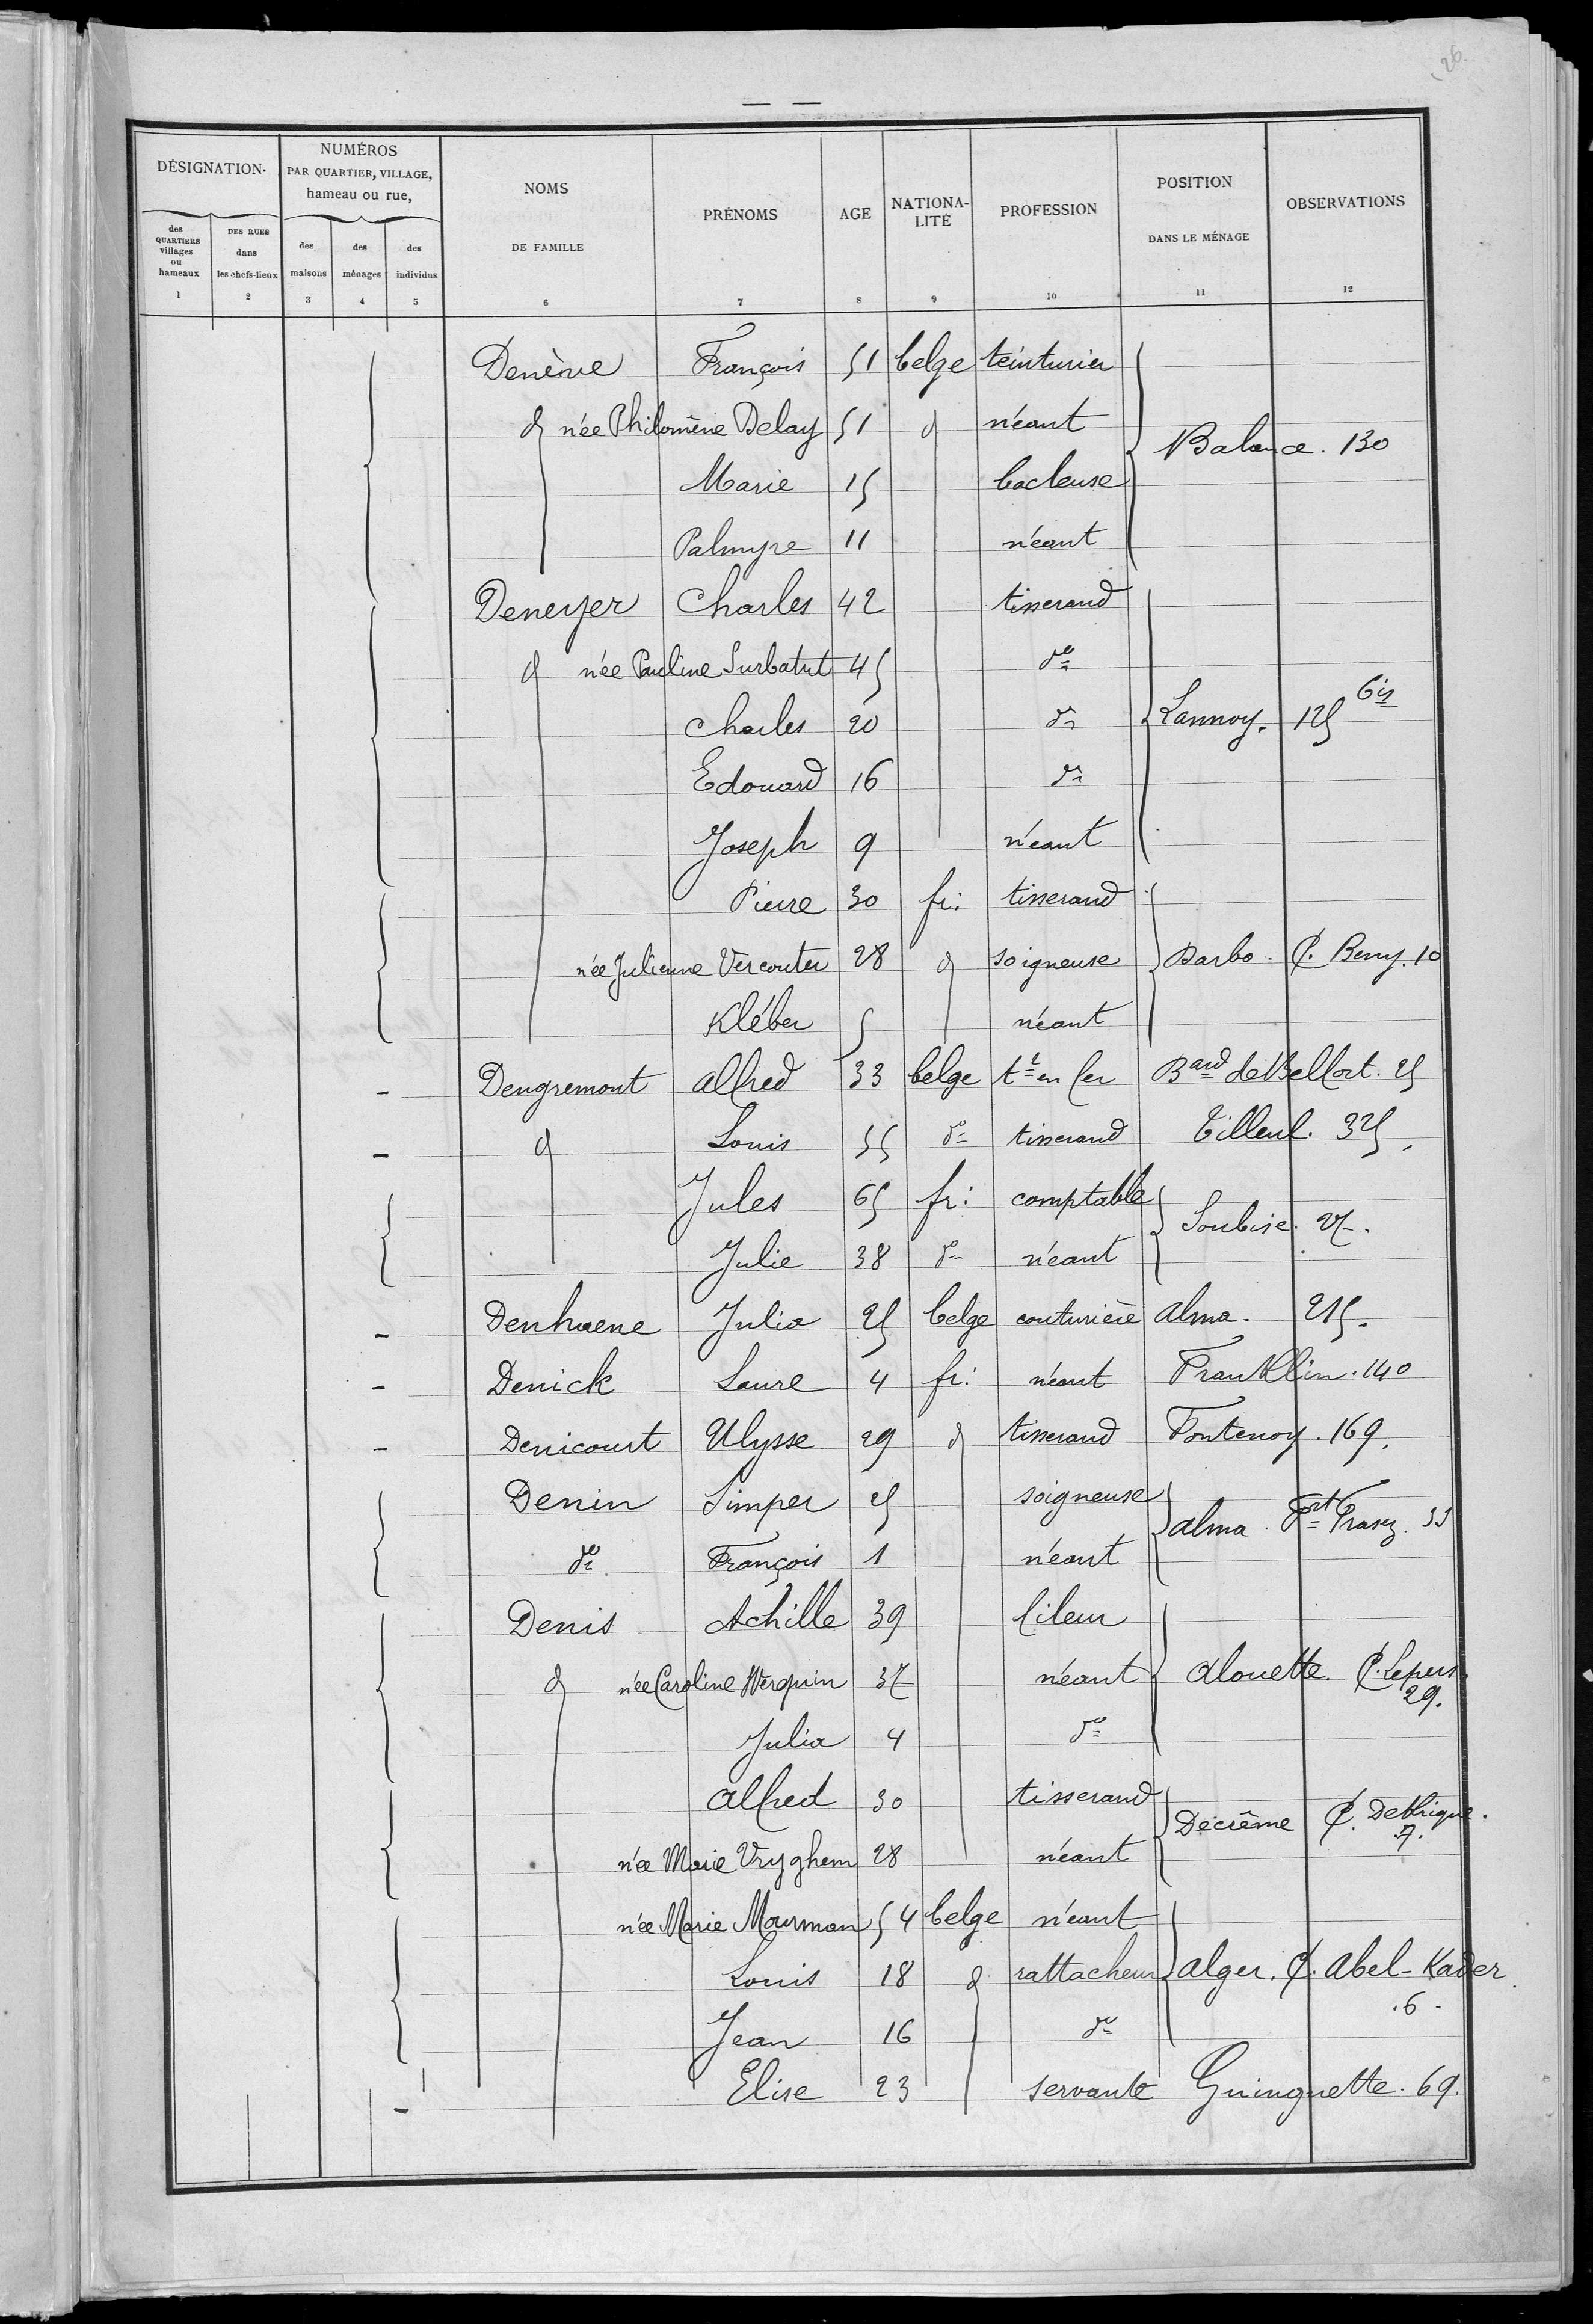 26.
DÉSIGNATION.
NUMÉROS
PAR QUARTIER, VILLAGE,
hameau ou rue,
NOMS
DE FAMILLE
PRÉNOMS
AGE
NATIONA-
LITÉ
PROFESSION
POSITION
DANS LE MÉNAGE
OBSERVATIONS
des
QUARTIERS
villages
ou
hameaux
DES RUES
dans
les chefs-lieux
des
maisons
des
ménages
des
individus
1 2 3 4 5 6 7 8 9 10 11 12
Denève François 51 belge teinturier
d née Philomène Delay 51 d néant
Balance. 130
Marie 15 bacleuse
Palmyre 11 néant
Deneyer Charles 42 tisserand
d née Pauline Surbatut 45 do
Charles 20 do Lannoy. 125 bis
Edouard 16 do
Joseph 9 néant
Pierre 30 fr: tisserand
née Julienne Vercouter 28 d soigneuse Barbo. C. Beny. 10
Kléber 5 néant
Dengremont Alfred 33 belge tr en fer Bard de Belfort. 25
d Louis 55 do tisserand Tilleul. 325.
Jules 65 fr: comptable
Soubise. 27.
Julie 38 do néant
Denhaene Julia 25 belge couturière Alma. 215.
Denick Laure 4 fr: néant Franklin. 140
Denicourt Ulysse 29 d tisserand Fontenoy. 169.
Denin Simper 25 soigneuse
Alma. Fort Frasez. 53
do François 1 néant
Denis Achille 39 fileur
d née Caroline Werquin 37 néant Alouette. C. Lepers
29.
Julia 4 do
Alfred 30 tisserand
Decrême C. Dethrique.
7.
née Marie Vryghem 28 néant
née Marie Mourman 54 belge néant
Louis 18 d rattacheur Alger. C. Abel-Kader
.6.
Jean 16 do
Elise 23 servante Guinguette. 69.